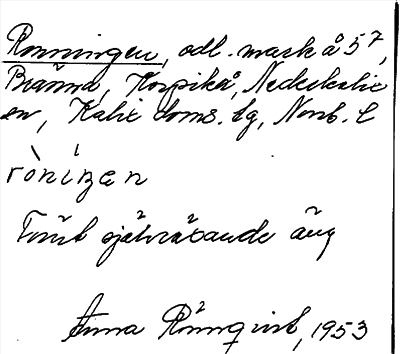 Rönningen, odl. mark å 5⁷,
Bränna, Korpikå, Nederkalix
sn, Kalix doms. lg, Norrb. l
rònízen
Torrt självrösande äng
Anna Rönnqvist, 1953